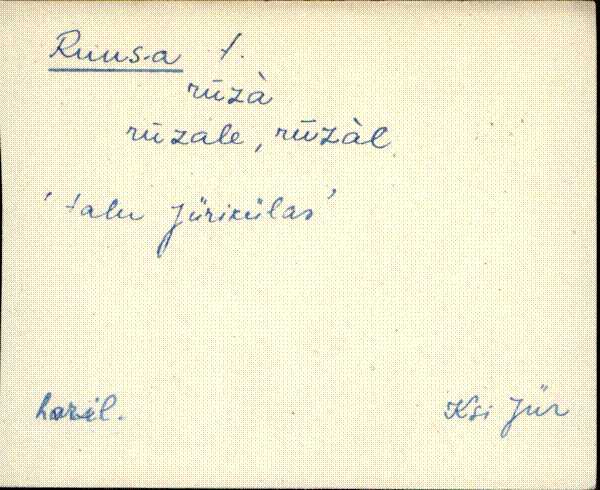 Ruusa t.
rūzà
rūzale, rūzàl
'talu Jüriküläs'
haril.
Ksi Jür